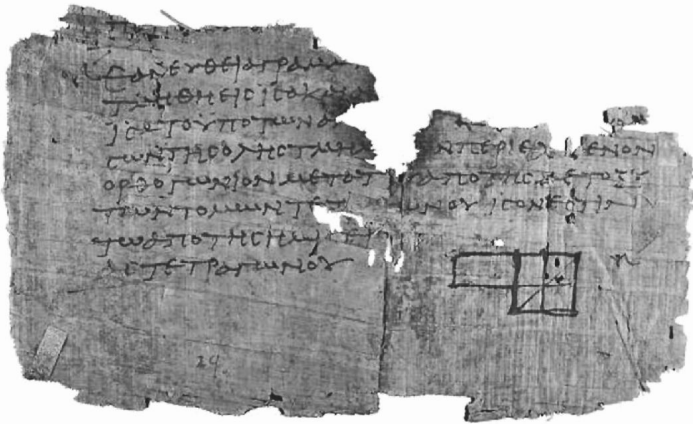 ΕΑΝ ΕΥΘΕΙΑ ΓΡΑΜΜ
ΤΜΗΘΗ ΕΙϹ ΙϹΑ ΚΑΙ
ΙϹΑ ΤΟ ΥΠΟ ΤΩΝ ΑΝ
ϹΩΝ ΤΗϹ ΟΛΗϹ ΤΜΗ Ν ΠΕΡΙΕΧ ΜΕΝΟΝ
ΟΡΘΟΓΩΝΙΟΝ ΜΕΤΑ Τ ΑΠΟ ΤΗϹ ΜΕΤΟΞΥ
ΤΩΝ ΤΟΜΩΝ ΤΕΤ ΩΝΟΥ ΙϹΟΝ ΕϹΤΙΝ
ΤΩ ΑΠΟ ΤΗϹ ΗΜΙ
ΑϹ ΤΕΤΡΑΓΩΝΟΥ
29